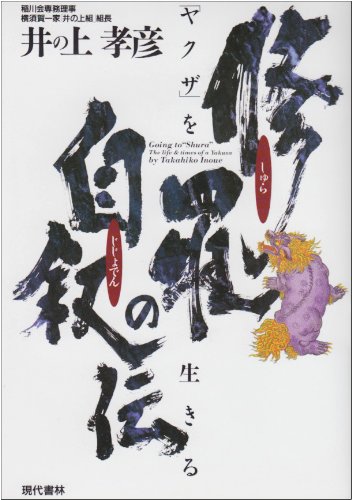 稲川会専務理事
横須賀一家 井の上組 組長
井の上 孝彦
「ヤクザ」を生きる
修羅
しゅら
の
自叙伝
じじょでん
Going to "Shura"
The life & times of a Yakuza
by Takahiko Inoue
現代書林